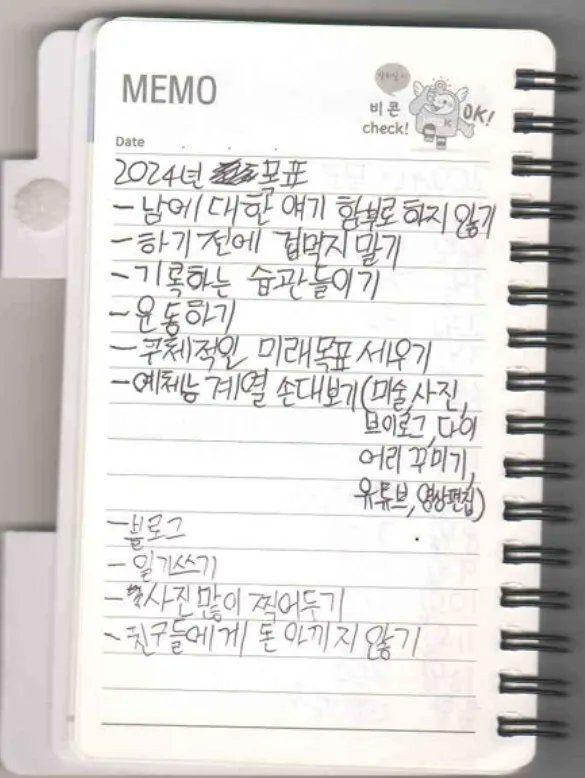 MEMO
비콘
check!
OK!
K
Date
2024년 목표
- 남에 대한 얘기 함부로 하지 않기
- 하기 전에 겁먹지 말기
- 기록하는 습관들이기
- 운동하기
- 구체적인 미래목표 세우기
- 예체능 계열 손대보기(미술, 사진,
브이로그, 다이
어리 꾸미기,
유튜브, 영상편집)
- 블로그
- 일기쓰기
- 사진 많이 찍어두기
- 친구들에게 돈 아끼지 않기